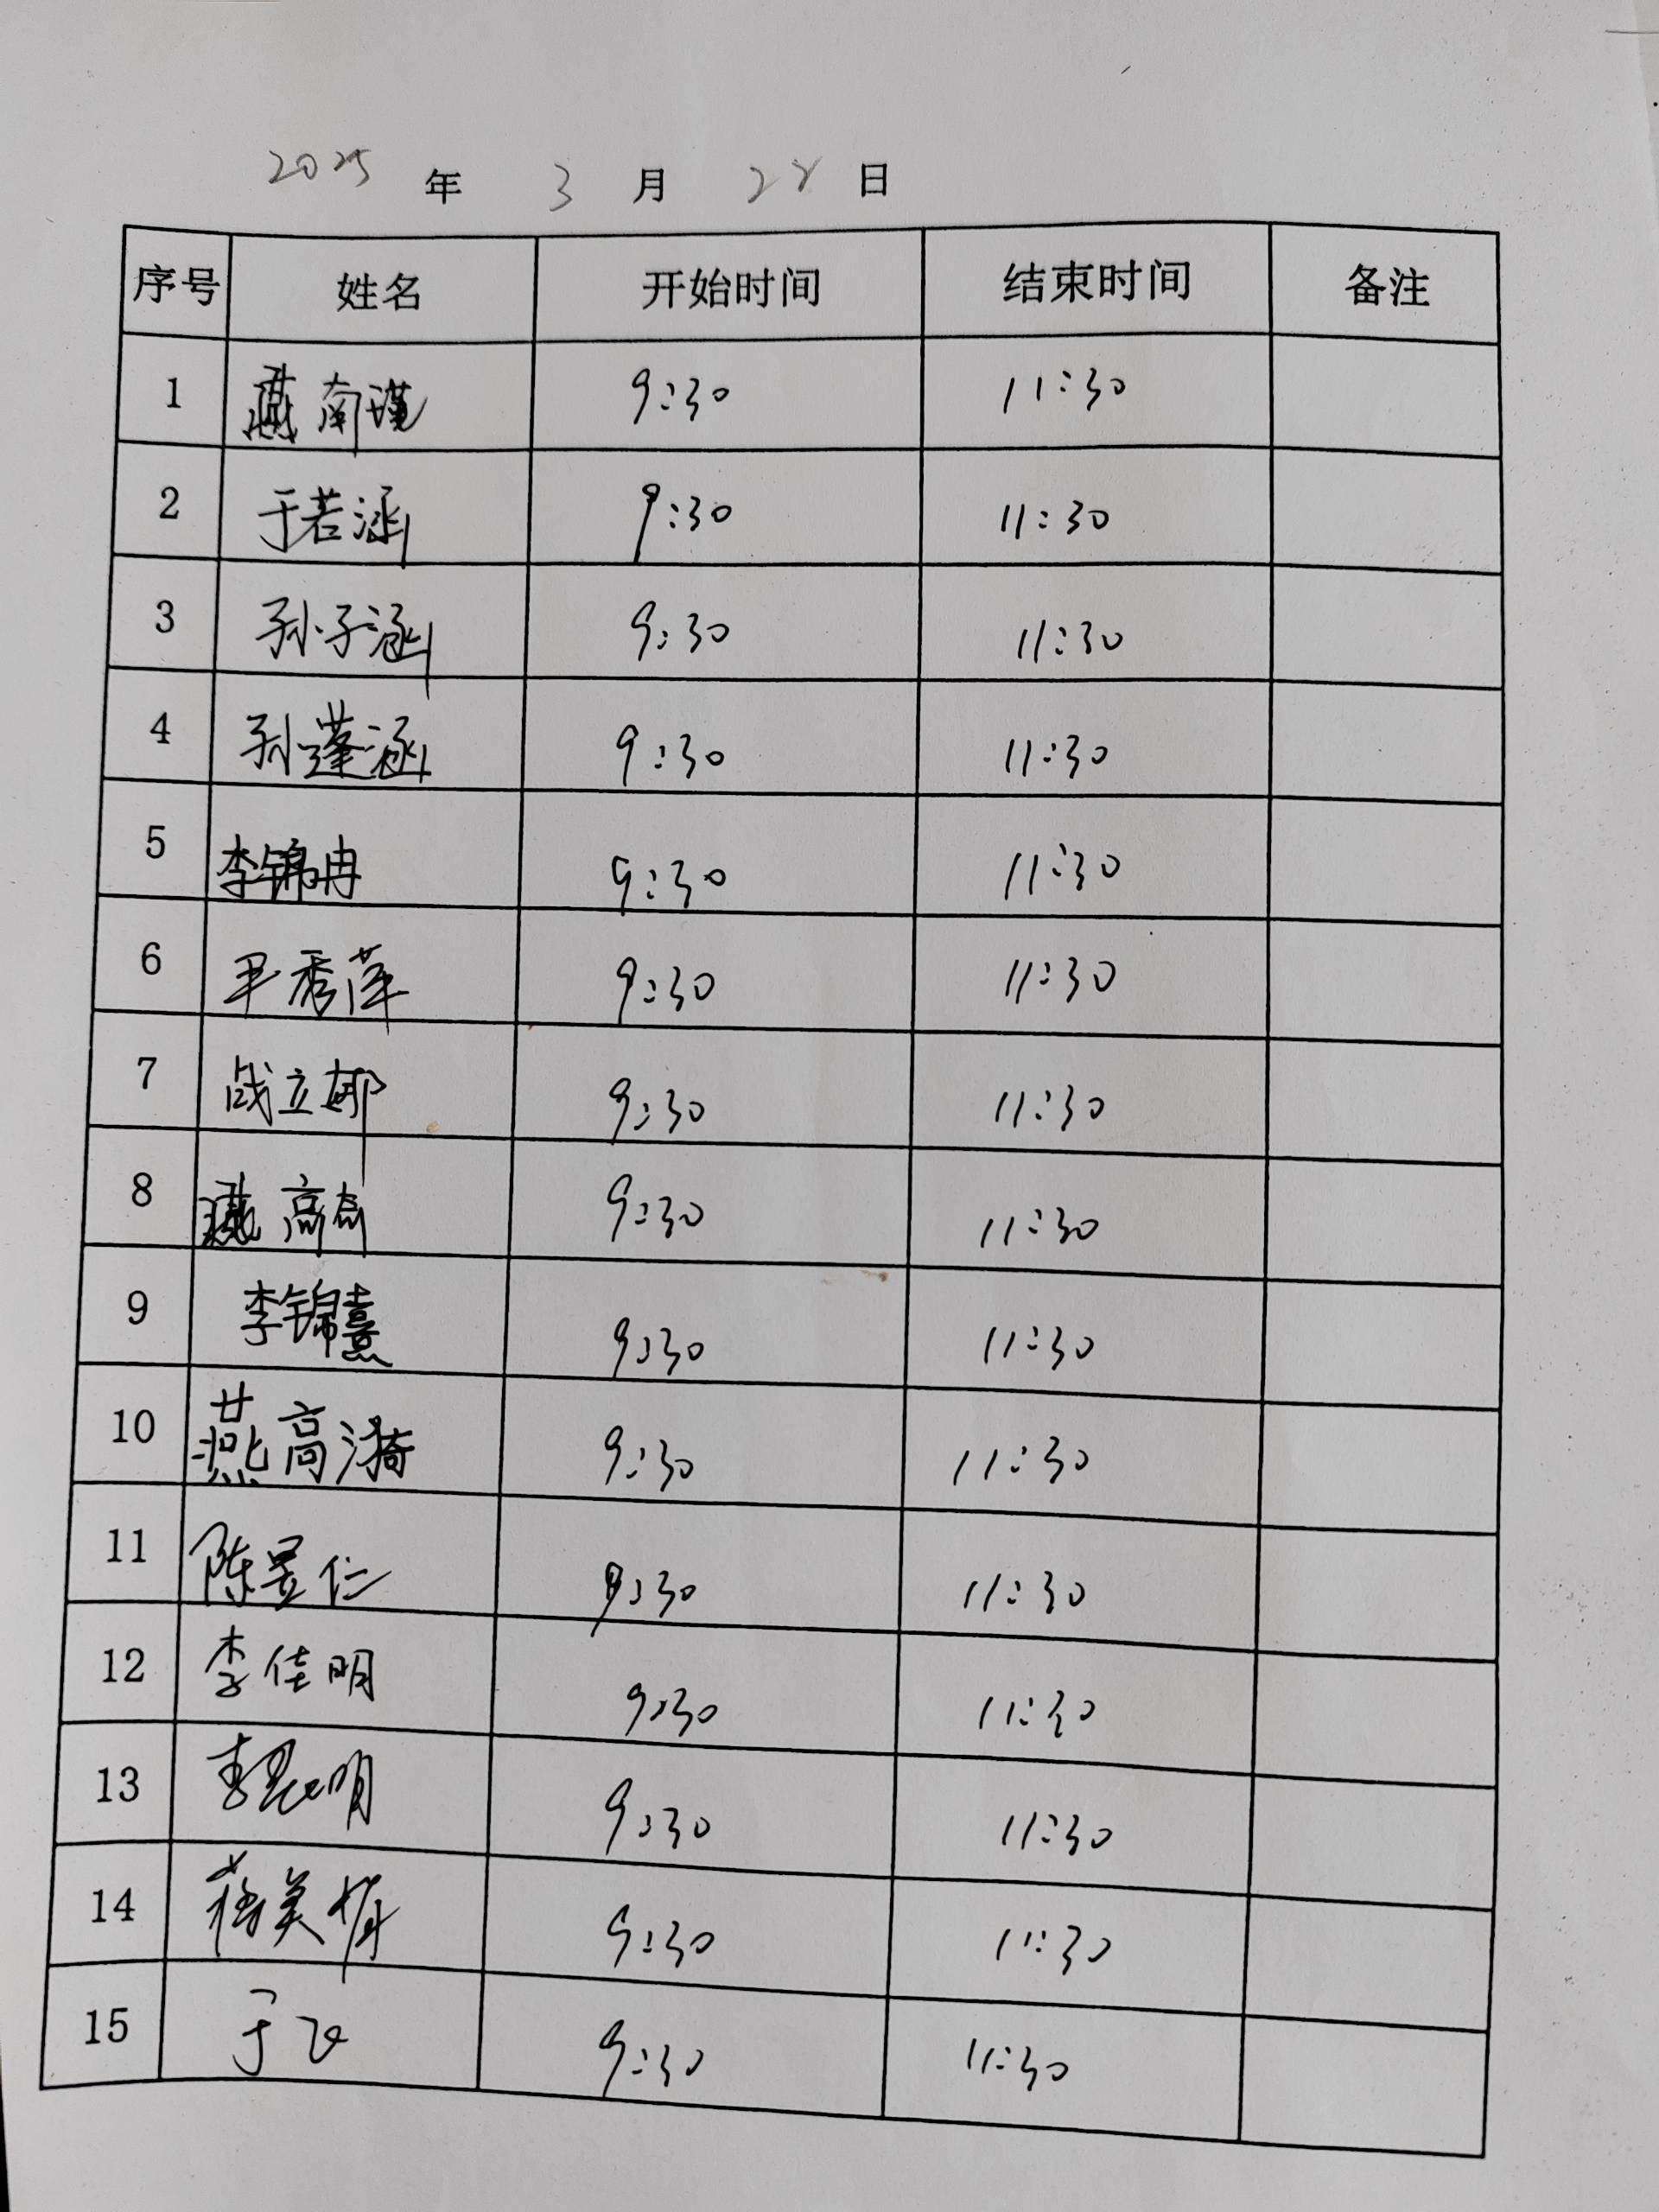 2025 年 3 月 28 日
序号 姓名 开始时间 结束时间 备注
1 燕南瑾 9:30 11:30
2 于若涵 9:30 11:30
3 孙子涵 9:30 11:30
4 孙蓬涵 9:30 11:30
5 李锦冉 9:30 11:30
6 尹秀萍 9:30 11:30
7 战立娜 9:30 11:30
8 燕高 9:30 11:30
9 李锦熹 9:30 11:30
10 燕高漪 9:30 11:30
11 陈昱仁 9:30 11:30
12 李佳明 9:30 11:30
13 李昆明 9:30 11:30
14 美 9:30 11:30
15 于飞 9:30 11:30